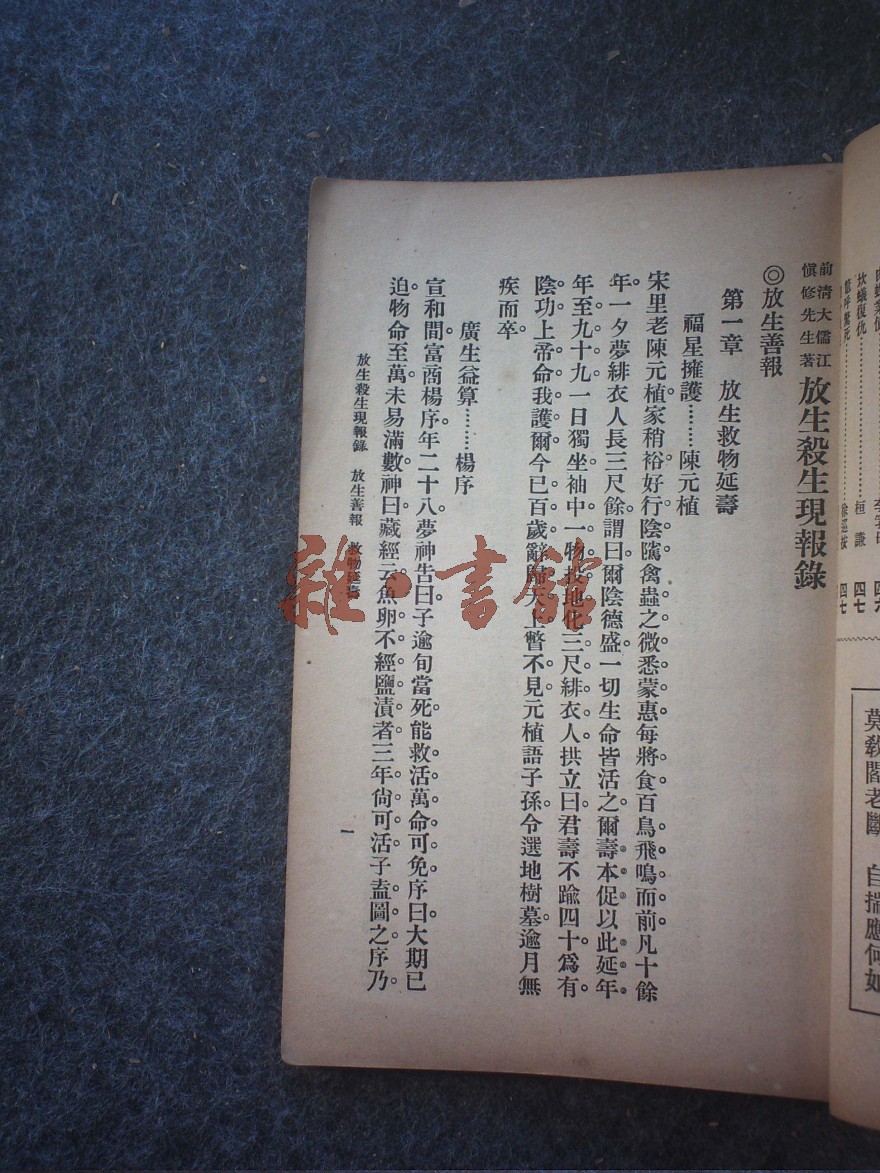 前淸大儒江
愼修先生著
放生殺生現報錄
◎放生善報
第一章 放生救物延壽
福星擁護………陳元植
宋里老陳元植家稍裕好行陰隲禽蟲之微悉蒙惠每將食百鳥飛鳴而前凡十餘
年。一夕夢緋衣人長三尺餘謂曰爾陰德盛一切生命皆活之爾壽本促以此延年
年至九十九一日獨坐袖中一物投地化三尺緋衣人拱立曰君壽不踰四十爲有
陰功上帝命我護爾今已百歲辭歸天上瞥不見元植語子孫令選地樹墓逾月無
疾而卒。
廣生益算………楊序
宣和間富商楊序年二十八夢神告曰子逾旬當死能救活萬命可免序曰大期已
迫物命至萬未易滿數神曰藏經云魚卵不經鹽漬者三年尙可活子盍圖之序乃
放生殺生現報錄 放生善報 救物延壽
一
坎蟻復仇
桓謙
四七
四七
莫教閻老斷 自揣應何如
雜·書館